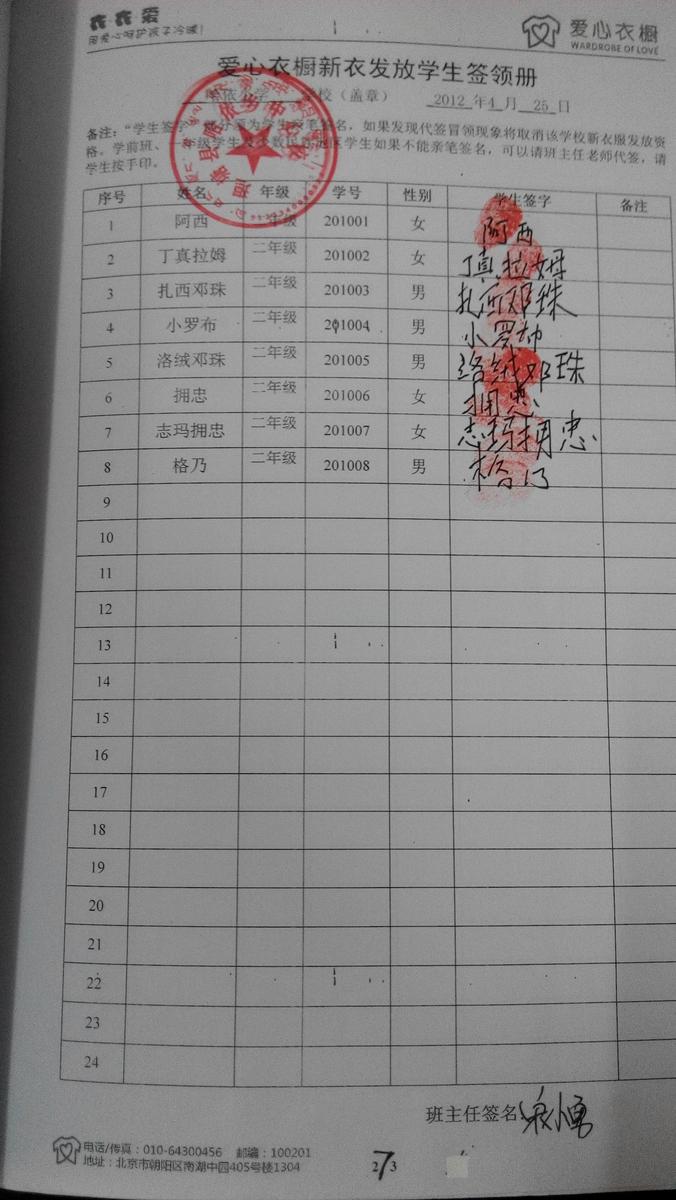 衣衣爱
用爱心呵护孩子冷暖!
爱心衣橱
WARDROBE OF LOVE
爱心衣橱新衣发放学生签领册
依小学 校（盖章） 2012 年 4 月 25 日
备注：“学生签字”部分须为学生亲笔签名，如果发现代签冒领现象将取消该学校新衣服发放资
格。学前班、一年级学生及少数民族地区学生如果不能亲笔签名，可以请班主任老师代签，请
学生按手印。
序号 姓名 年级 学号 性别 学生签字 备注
1 阿西 年级 201001 女 阿西
2 丁真拉姆 二年级 201002 女 丁真拉姆
3 扎西邓珠 二年级 201003 男 扎西邓珠
4 小罗布 二年级 201004 男 小罗布
5 洛绒邓珠 二年级 201005 男 洛绒邓珠
6 拥忠 二年级 201006 女 拥忠
7 志玛拥忠 二年级 201007 女 志玛拥忠
8 格乃 二年级 201008 男 格乃
9
10
11
12
13
14
15
16
17
18
19
20
21
22
23
24
班主任签名
电话/传真：010-64300456 邮编：100201
地址：北京市朝阳区南湖中园405号楼1304
2 7 3